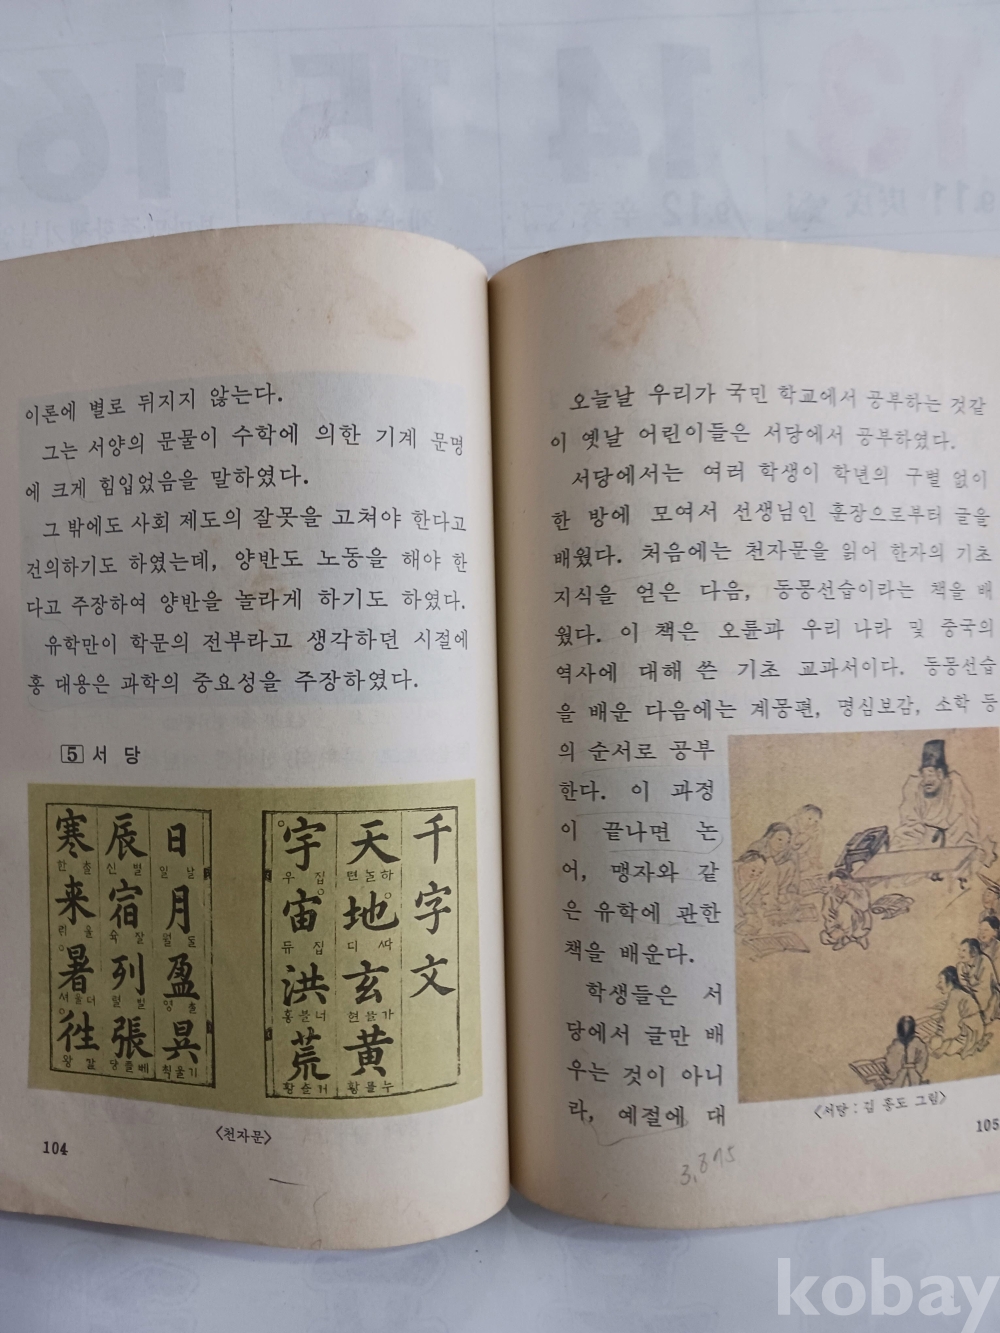 이론에 별로 뒤지지 않는다.
그는 서양의 문물이 수학에 의한 기계 문명
에 크게 힘입었음을 말하였다.
그 밖에도 사회 제도의 잘못을 고쳐야 한다고
건의하기도 하였는데, 양반도 노동을 해야 한
다고 주장하여 양반을 놀라게 하기도 하였다.
유학만이 학문의 전부라고 생각하던 시절에
홍 대용은 과학의 중요성을 주장하였다.
5 서 당
千字文
天地玄黄
宇宙洪荒
日月盈昃
辰宿列張
寒来暑徃
〈천자문〉
104
오늘날 우리가 국민 학교에서 공부하는 것같
이 옛날 어린이들은 서당에서 공부하였다.
서당에서는 여러 학생이 학년의 구별 없이
한 방에 모여서 선생님인 훈장으로부터 글을
배웠다. 처음에는 천자문을 읽어 한자의 기초
지식을 얻은 다음, 동몽선습이라는 책을 배
웠다. 이 책은 오륜과 우리 나라 및 중국의
역사에 대해 쓴 기초 교과서이다. 동몽선습
을 배운 다음에는 계몽편, 명심보감, 소학 등
의 순서로 공부
한다. 이 과정
이 끝나면 논
어, 맹자와 같
은 유학에 관한
책을 배운다.
학생들은 서
당에서 글만 배
우는 것이 아니
라, 예절에 대
〈서당 : 김 홍도 그림〉
105
3,875
kobay